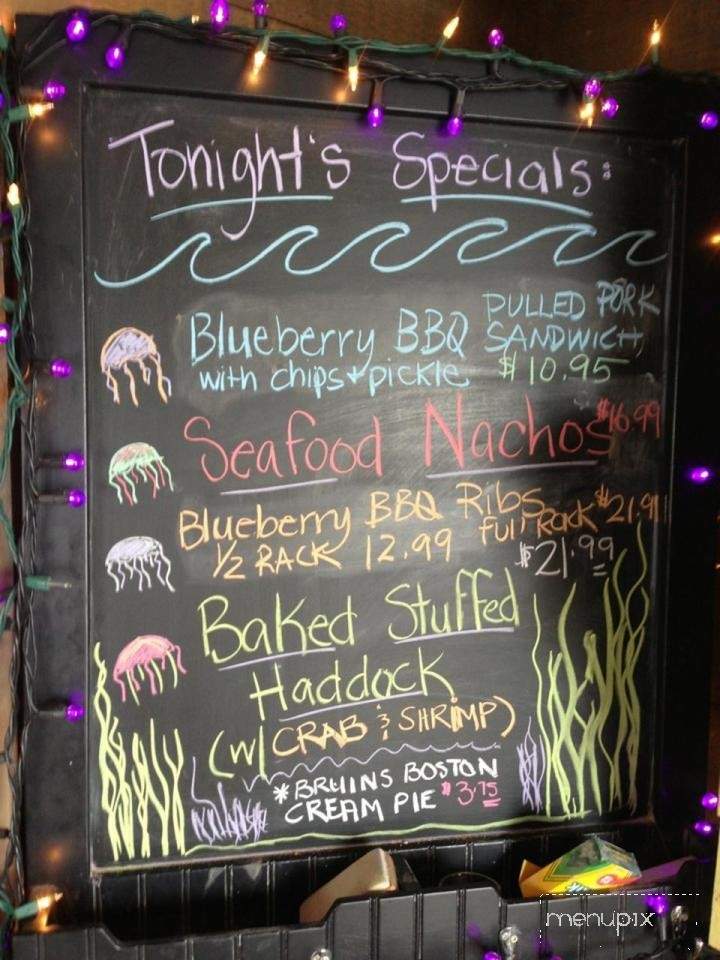 Tonight's Specials:
Blueberry BBQ PULLED PORK
SANDWICH
with chips + pickle $10.95
Seafood Nachos $16.99
Blueberry BBQ Ribs
1/2 RACK 12.99 full Rack $21.99
$21.99
Baked Stuffed
Haddock
(w/ CRAB & SHRIMP)
*BRUINS BOSTON
CREAM PIE $3.75
menupix